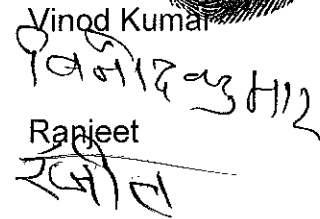 Vinod Kumar
विनोद कुमार
Ranjeet
रंजीत